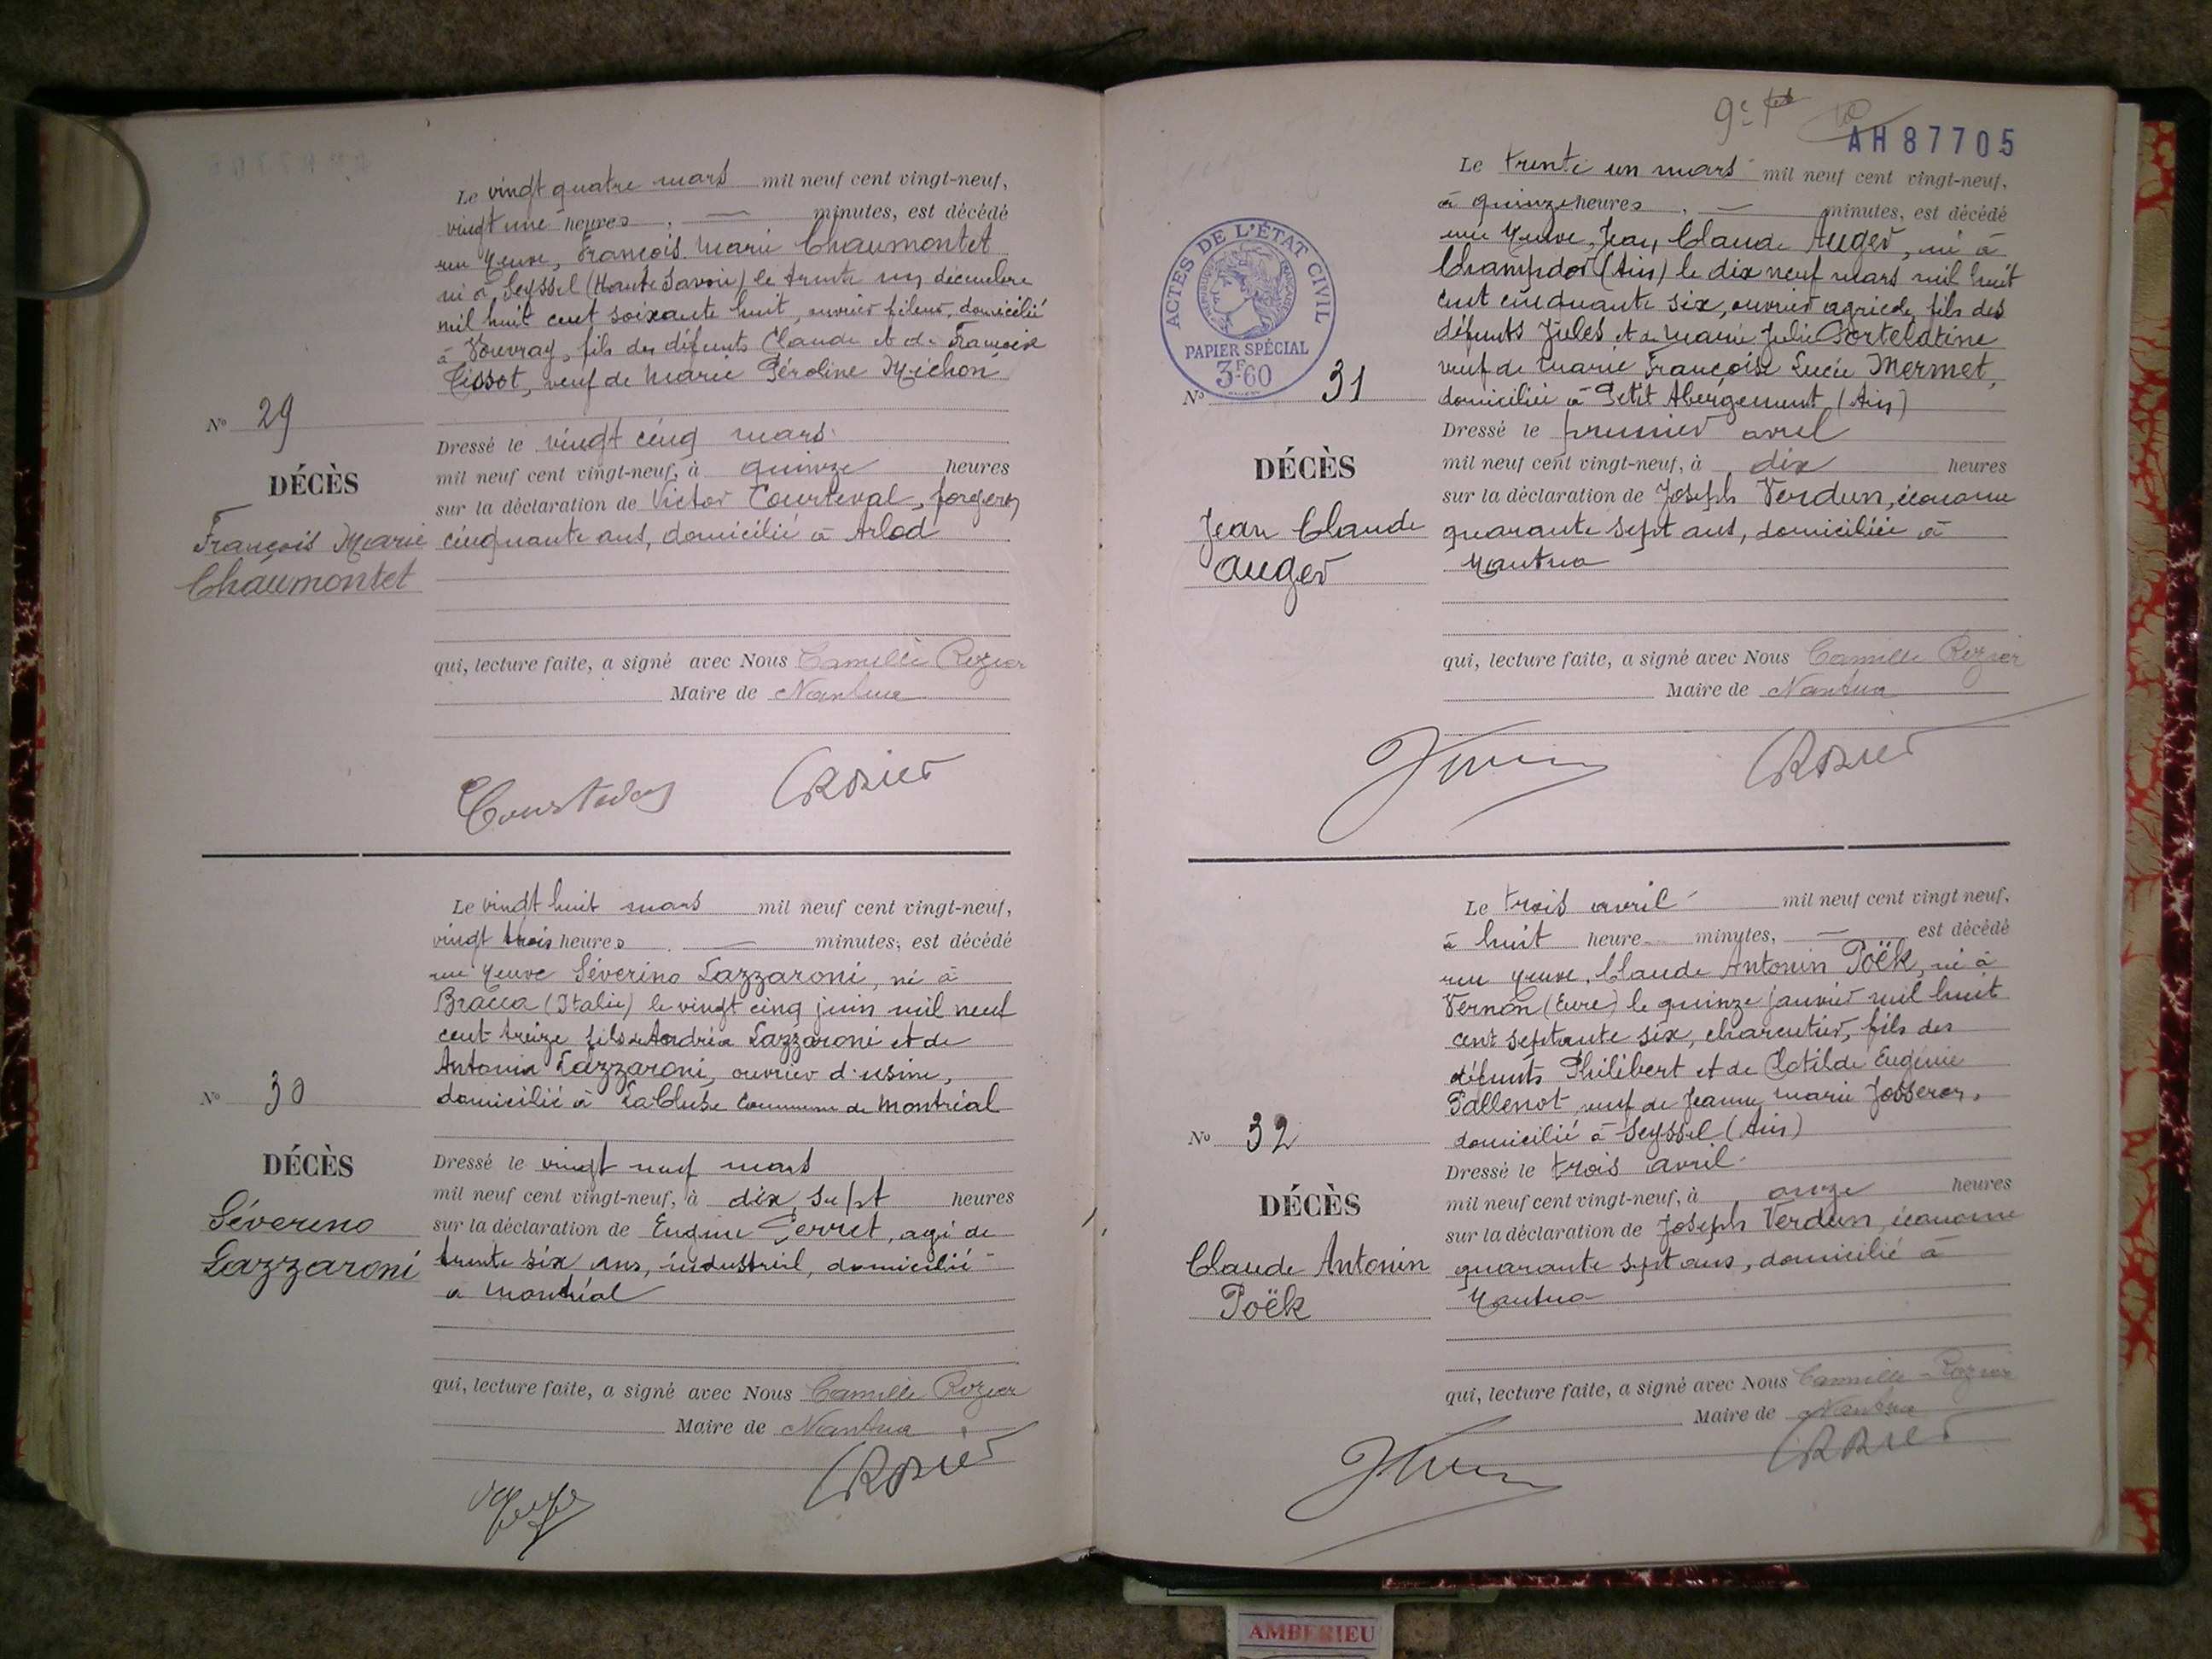 Le vingt quatre mars mil neuf cent vingt-neuf,
vingt une heures, — minutes, est décédé
rue Neuve, François Marie Chaumontet
né à Seyssel (Haute Savoie) le trente un décembre
mil huit cent soixante huit, ouvrier fileur, domicilié
à Vouvray, fils des défunts Claude et de Françoise
Tissot, veuf de Marie Péroline Michon
Nº 29
DÉCÈS
François Marie
Chaumontet
Dressé le vingt cinq mars
mil neuf cent vingt-neuf, à quinze heures
sur la déclaration de Victor Courteval, forgeron
cinquante ans, domicilié à Arlod
qui, lecture faite, a signé avec Nous Camille Rozier
Maire de Nantua
CRozier
Le vingt huit mars mil neuf cent vingt-neuf,
vingt trois heures — minutes, est décédé
rue Neuve Séverino Lazzaroni, né à
Bracca (Italie) le vingt cinq juin mil neuf
cent treize fils de Andréa Lazzaroni et de
Antonia Lazzaroni, ouvrier d'usine,
domicilié à La Cluse commune de Montréal
Nº 30
DÉCÈS
Séverino
Lazzaroni
Dressé le vingt neuf mars
mil neuf cent vingt-neuf, à dix sept heures
sur la déclaration de Eugène Perret, agé de
trente six ans, industriel, domicilié
à Montréal
qui, lecture faite, a signé avec Nous Camille Rozier
Maire de Nantua
CRozier
9e
AH87705
ACTES DE L'ÉTAT CIVIL
PAPIER SPÉCIAL
3F60
Le trente un mars mil neuf cent vingt-neuf,
à quinze heures, — minutes, est décédé
rue Neuve, Jean Claude Auger, né à
Champdor (Ain) le dix neuf mars mil huit
cent cinquante six, ouvrier agricole, fils des
défunts Jules et de Marie Julie Sortelatine
veuf de Marie Françoise Lucie Mermet,
domicilié à Petit Abergement (Ain)
Nº 31
DÉCÈS
Jean Claude
Auger
Dressé le premier avril
mil neuf cent vingt-neuf, à dix heures
sur la déclaration de Joseph Verdun, économe
quarante sept ans, domiciliée à
Nantua
qui, lecture faite, a signé avec Nous Camille Rozier
Maire de Nantua
CRozier
Le trois avril mil neuf cent vingt neuf,
à huit heure minutes, — est décédé
rue Neuve, Claude Antonin Poëk, né à
Vernon (Eure) le quinze janvier mil huit
cent septante six, charcutier, fils des
défunts Philibert et de Clotilde Eugénie
Pallenot, veuf de Jeanne Marie Josseron,
domicilié à Seyssel (Ain)
Nº 32
DÉCÈS
Claude Antonin
Poëk
Dressé le trois avril
mil neuf cent vingt-neuf, à onze heures
sur la déclaration de Joseph Verdun, économe
quarante sept ans, domicilié à
Nantua
qui, lecture faite, a signé avec Nous Camille Rozier
Maire de Nantua
CRozier
AMBERIEU